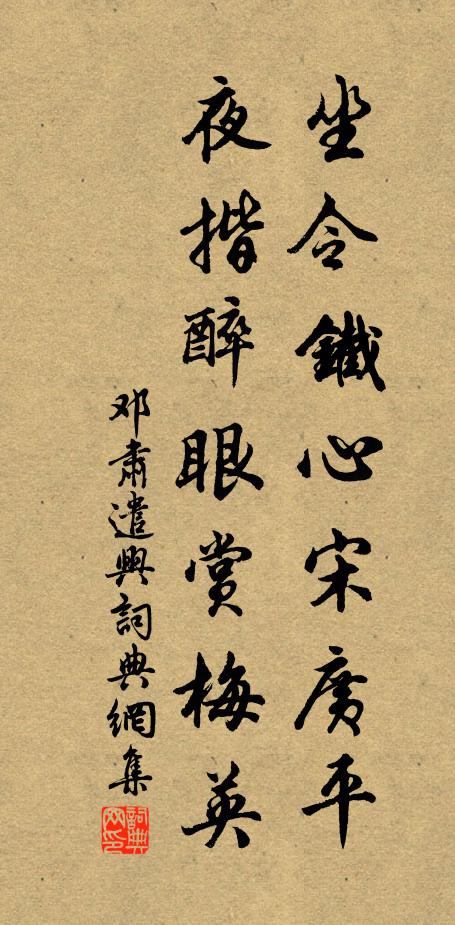 坐令鐵心宋廣平
夜揩醉眼賞梅英
邓肅遣興詞典網集
詞典网印